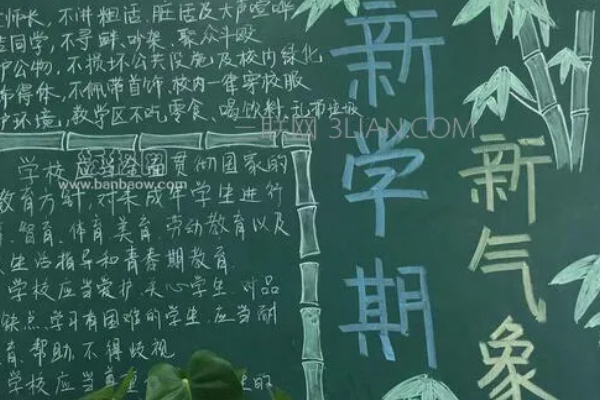 师长，不讲粗话、脏话及大声喧哗
同学，不寻衅、吵架、聚众斗殴
护公物，不损坏公共设施及校内绿化
得体，不佩带首饰，校内一律穿校服
护环境，教学区不吃零食、喝饮料，乱
学校应当全面贯彻国家的
教育方针，对未成年学生进行
智育、体育、美育、劳动教育以及
生活指导和青春期教育.
学校应当爱护、关心学生，对品
缺点、学习有困难的学生，应当耐
育、帮助，不得歧视
学校应当尊 的
新学期
新气象
三联网 3LIAN.COM
办图网
www.banbaow.com